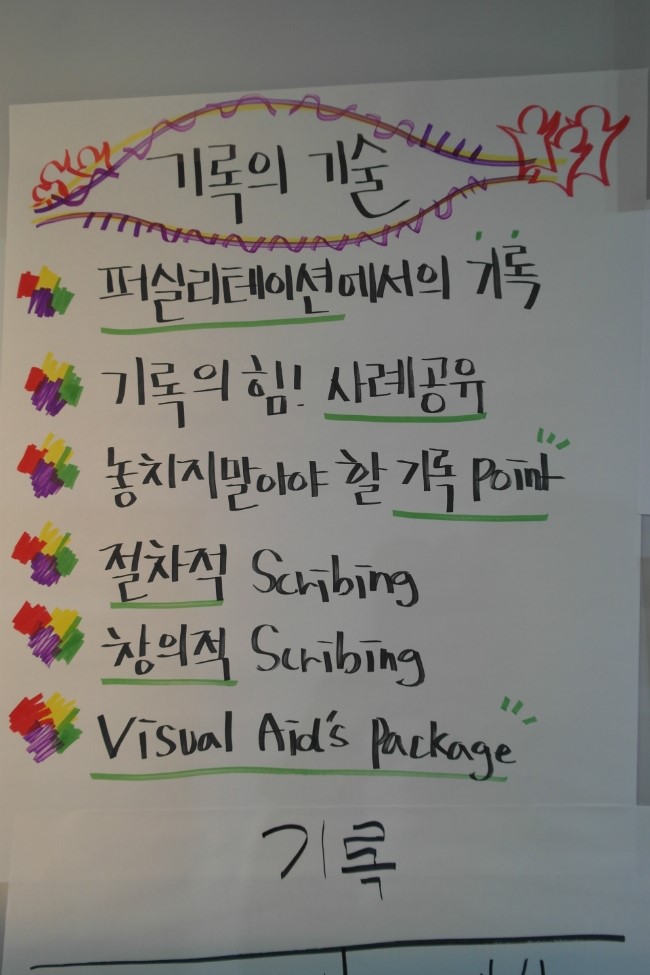 기록의 기술
퍼실리테이션에서의 기록
기록의 힘! 사례공유
놓치지말아야 할 기록 point
절차적 Scribing
창의적 Scribing
Visual Aid's Package
기록